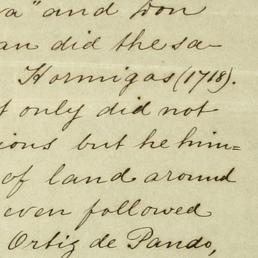 va" and Don
an did the sa-
Hormigas (1718).
t only did not
ions but he him=
of land around
even followed
Ortiz de Pando,